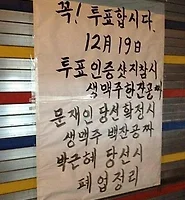 꼭! 투표합시다.
12月 19日
투표인증샷지참시
생맥주한잔공짜
문재인 당선확정시
생맥주 백잔공짜
박근혜 당선시
폐업정리